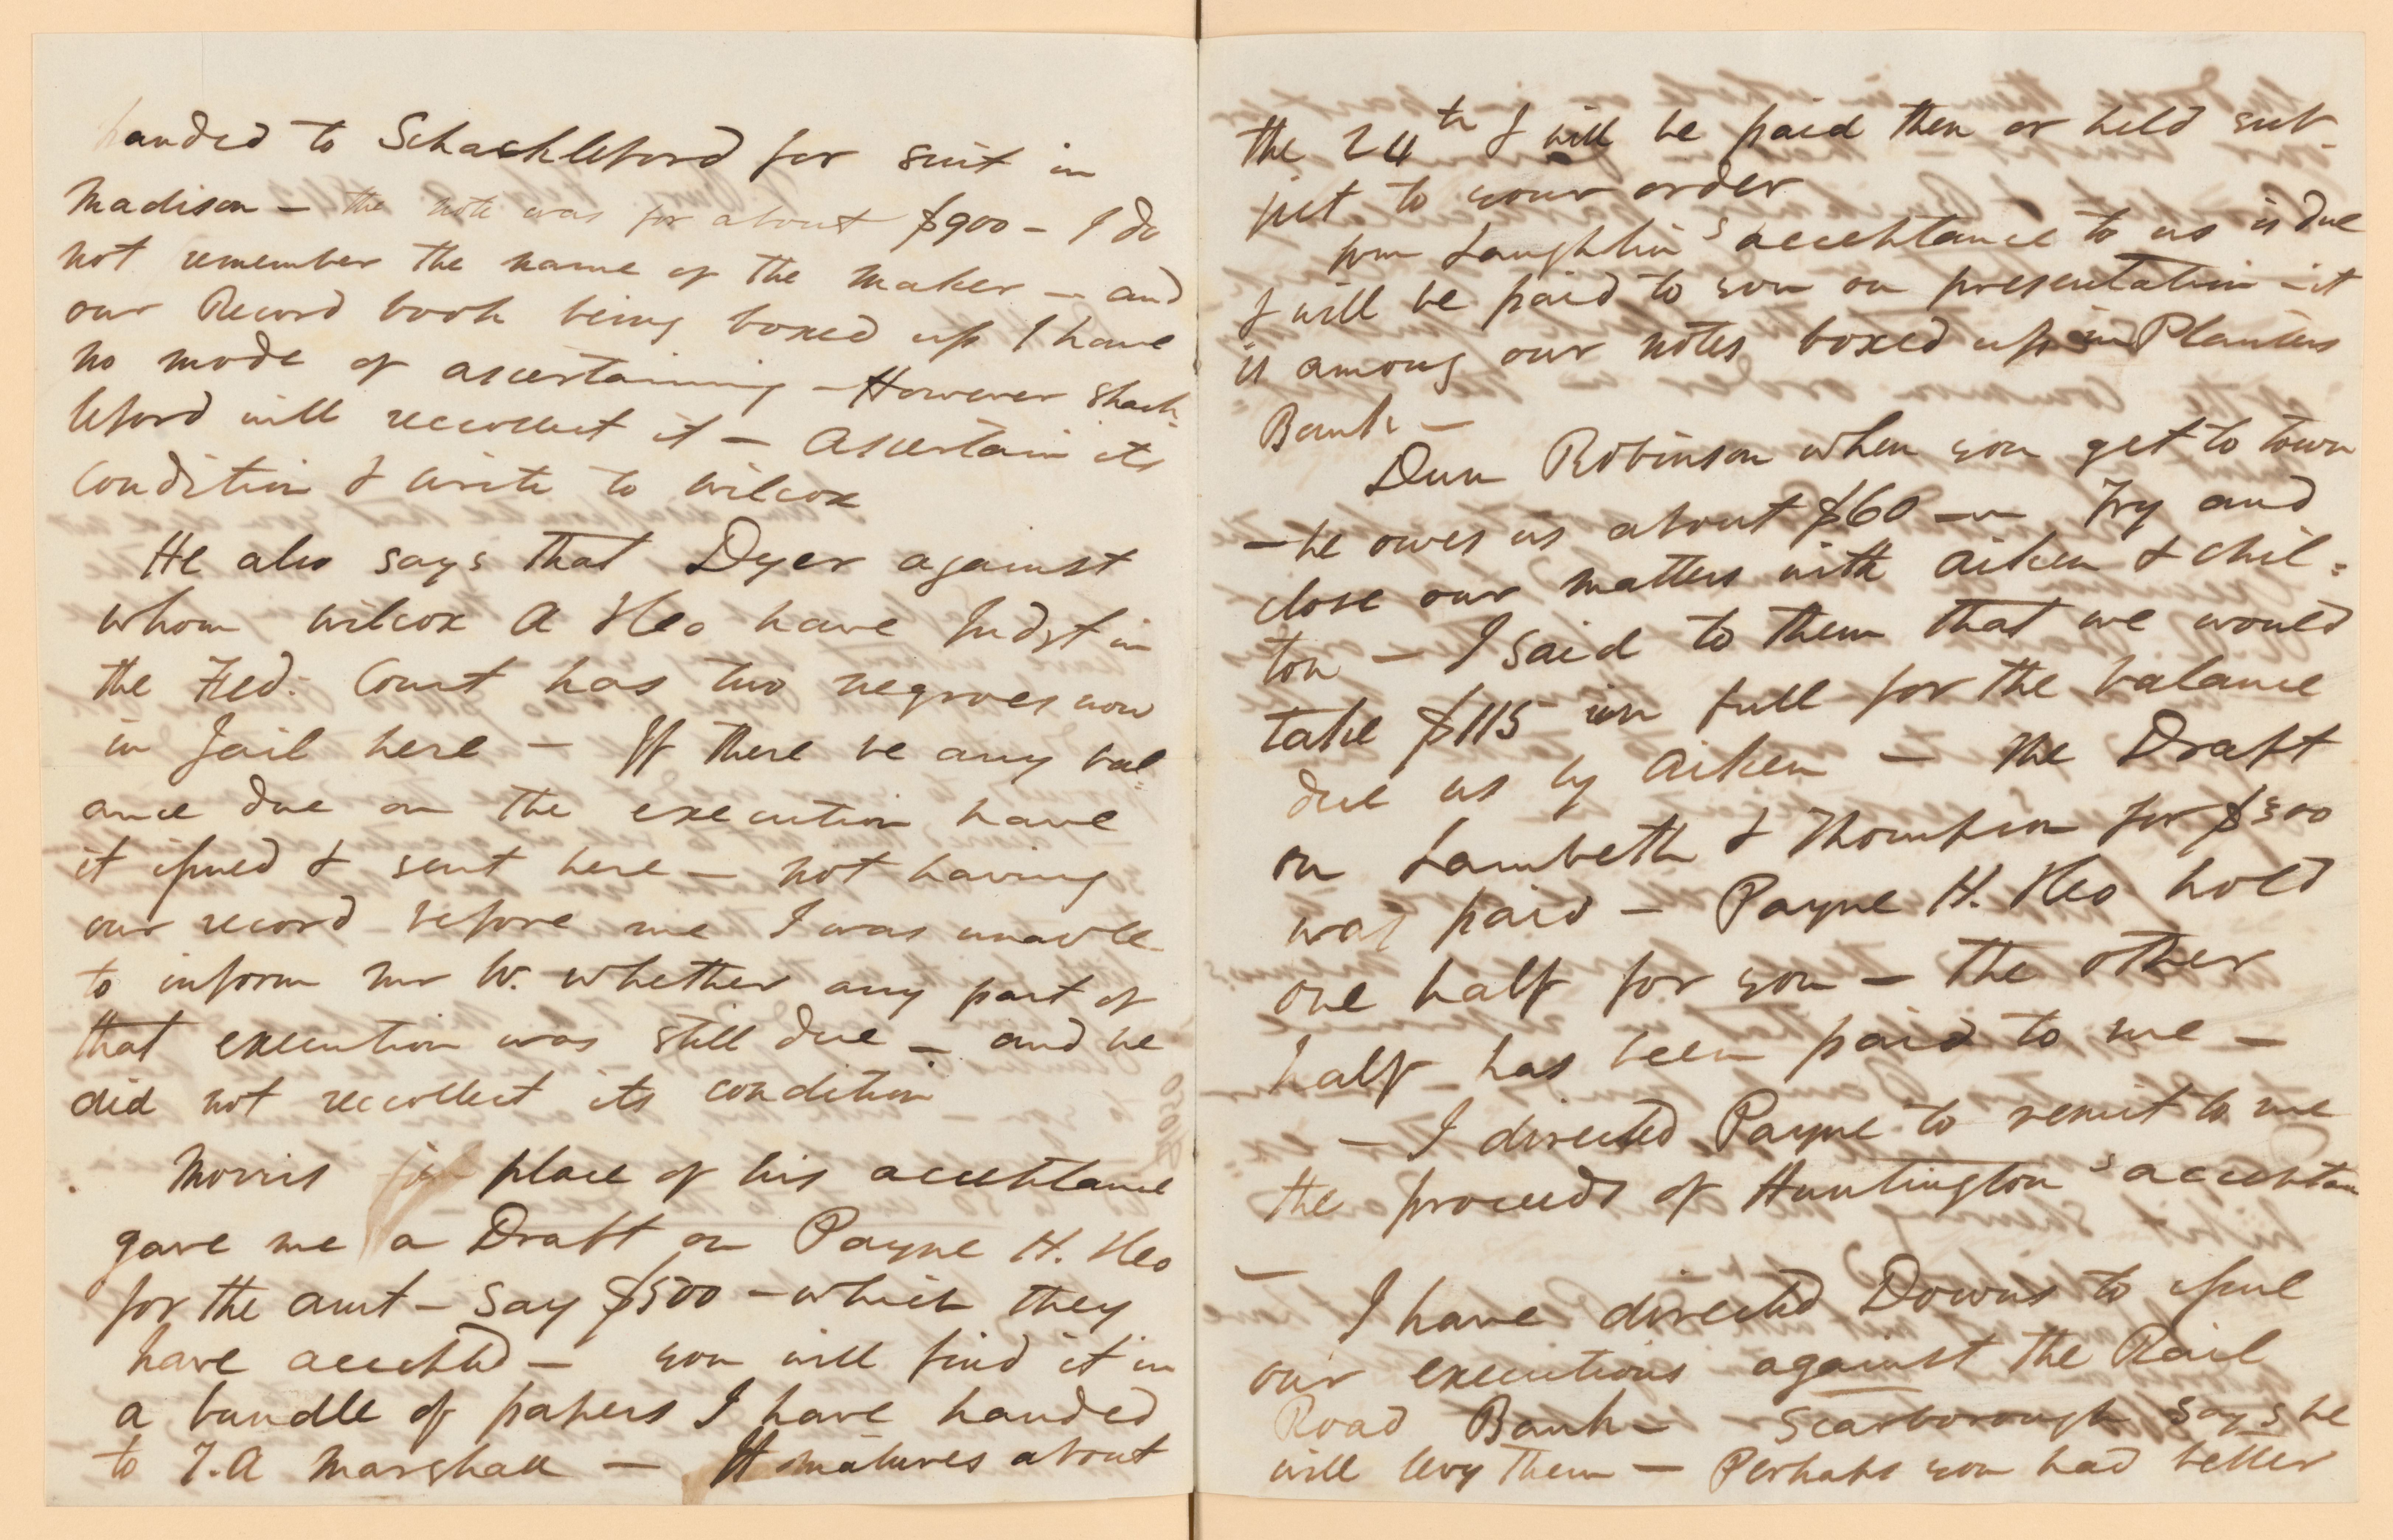 handed to Schackleford for suit in
Madison – the note was for about $900 – I do
not remember the name of the maker – and
our Record book being boxed up I have
no mode of ascertaining – However Shack-
leford will reccollect it – Ascertain its
condition & write to Wilcox
He also says that Dyer against
whom Wilcox A &Co have Judgt in
the Fed. Court has two negroes now
in Jail here – If there be any bal-
ance due on the execution have
it issued & sent here – not having
our record before me I was unable
to inform Mr W. whether any part of
that execution was still due – and he
did not reccollect its condition
Morris in place of his acceptance
gave me a Draft on Payne H. &Co
for the amt – Say $500 – which they
have accepted – you will find it in
a bundle of papers I have handed
to T. A Marshall – It matures about
the 24th & will be paid then or held sub-
ject to your order
Wm Laughlin's acceptance to us is due
& will be paid to you on presentation – it
is among our notes boxed up in Planters
Bank –
Dun Robinson when you get to town
– he owes us about $60 – Try and
close our matters with Aiken & Chil-
ton – I said to them that we would
take $115 in full for the balance
due us by Aiken – The Draft
on Lambeth & Thompson for $300
was paid – Payne H. &Co hold
one half for you – the other
half has been paid to me –
– I directed Payne to remit to me
the proceeds of Huntington's acceptan
–
I have directed Downs to issue
our executions against the Rail
Road Bank – Scarborough says he
will levy them – Perhaps you had better